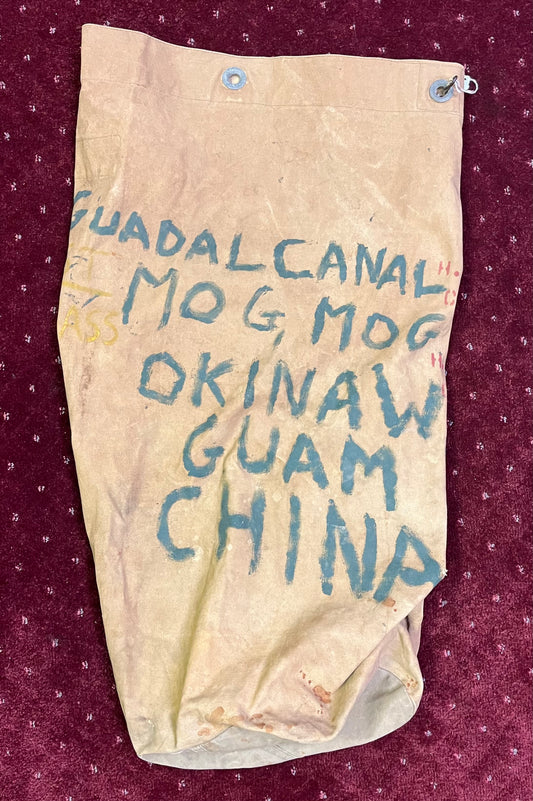 GUADALCANAL
MOG, MOG
OKINAW
GUAM
CHINA
ASS
H.